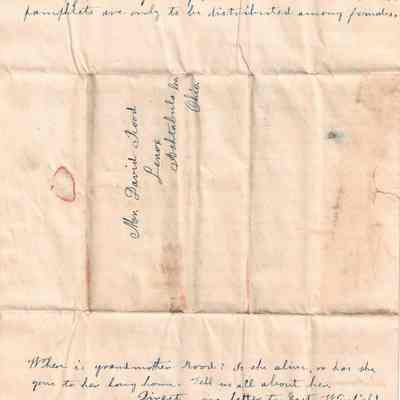 pamphlets are only to be distributed among females.
Mr. David Rood
Lenox
Ashtabula
Ohio
Where is grandmother Rood? Is she alive, or has she
gone to her long home. Tell us all about her.
Direct our letter to East